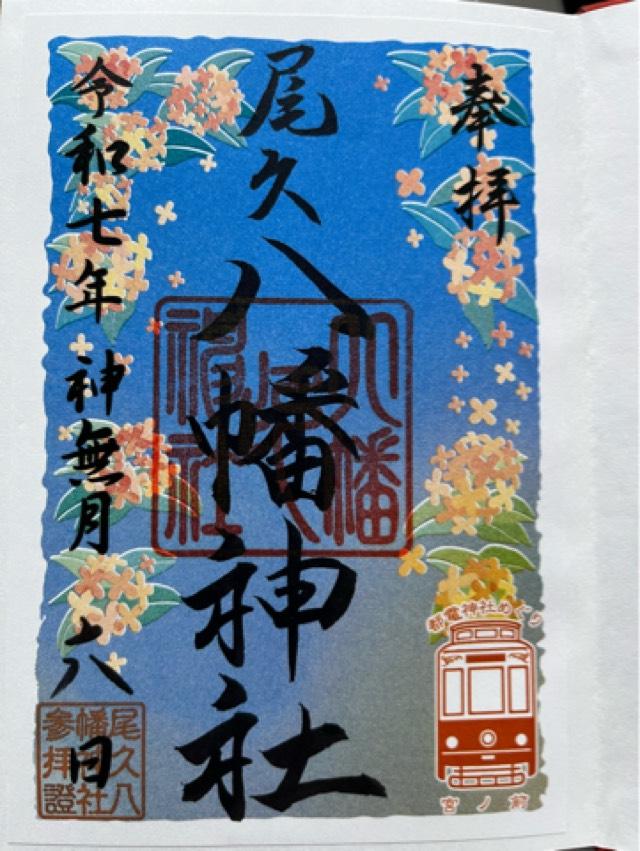 奉拝
尾久八幡神社
令和七年 神無月 六日
都電神社めぐり
宮ノ前
尾久八
幡神社
參拝證